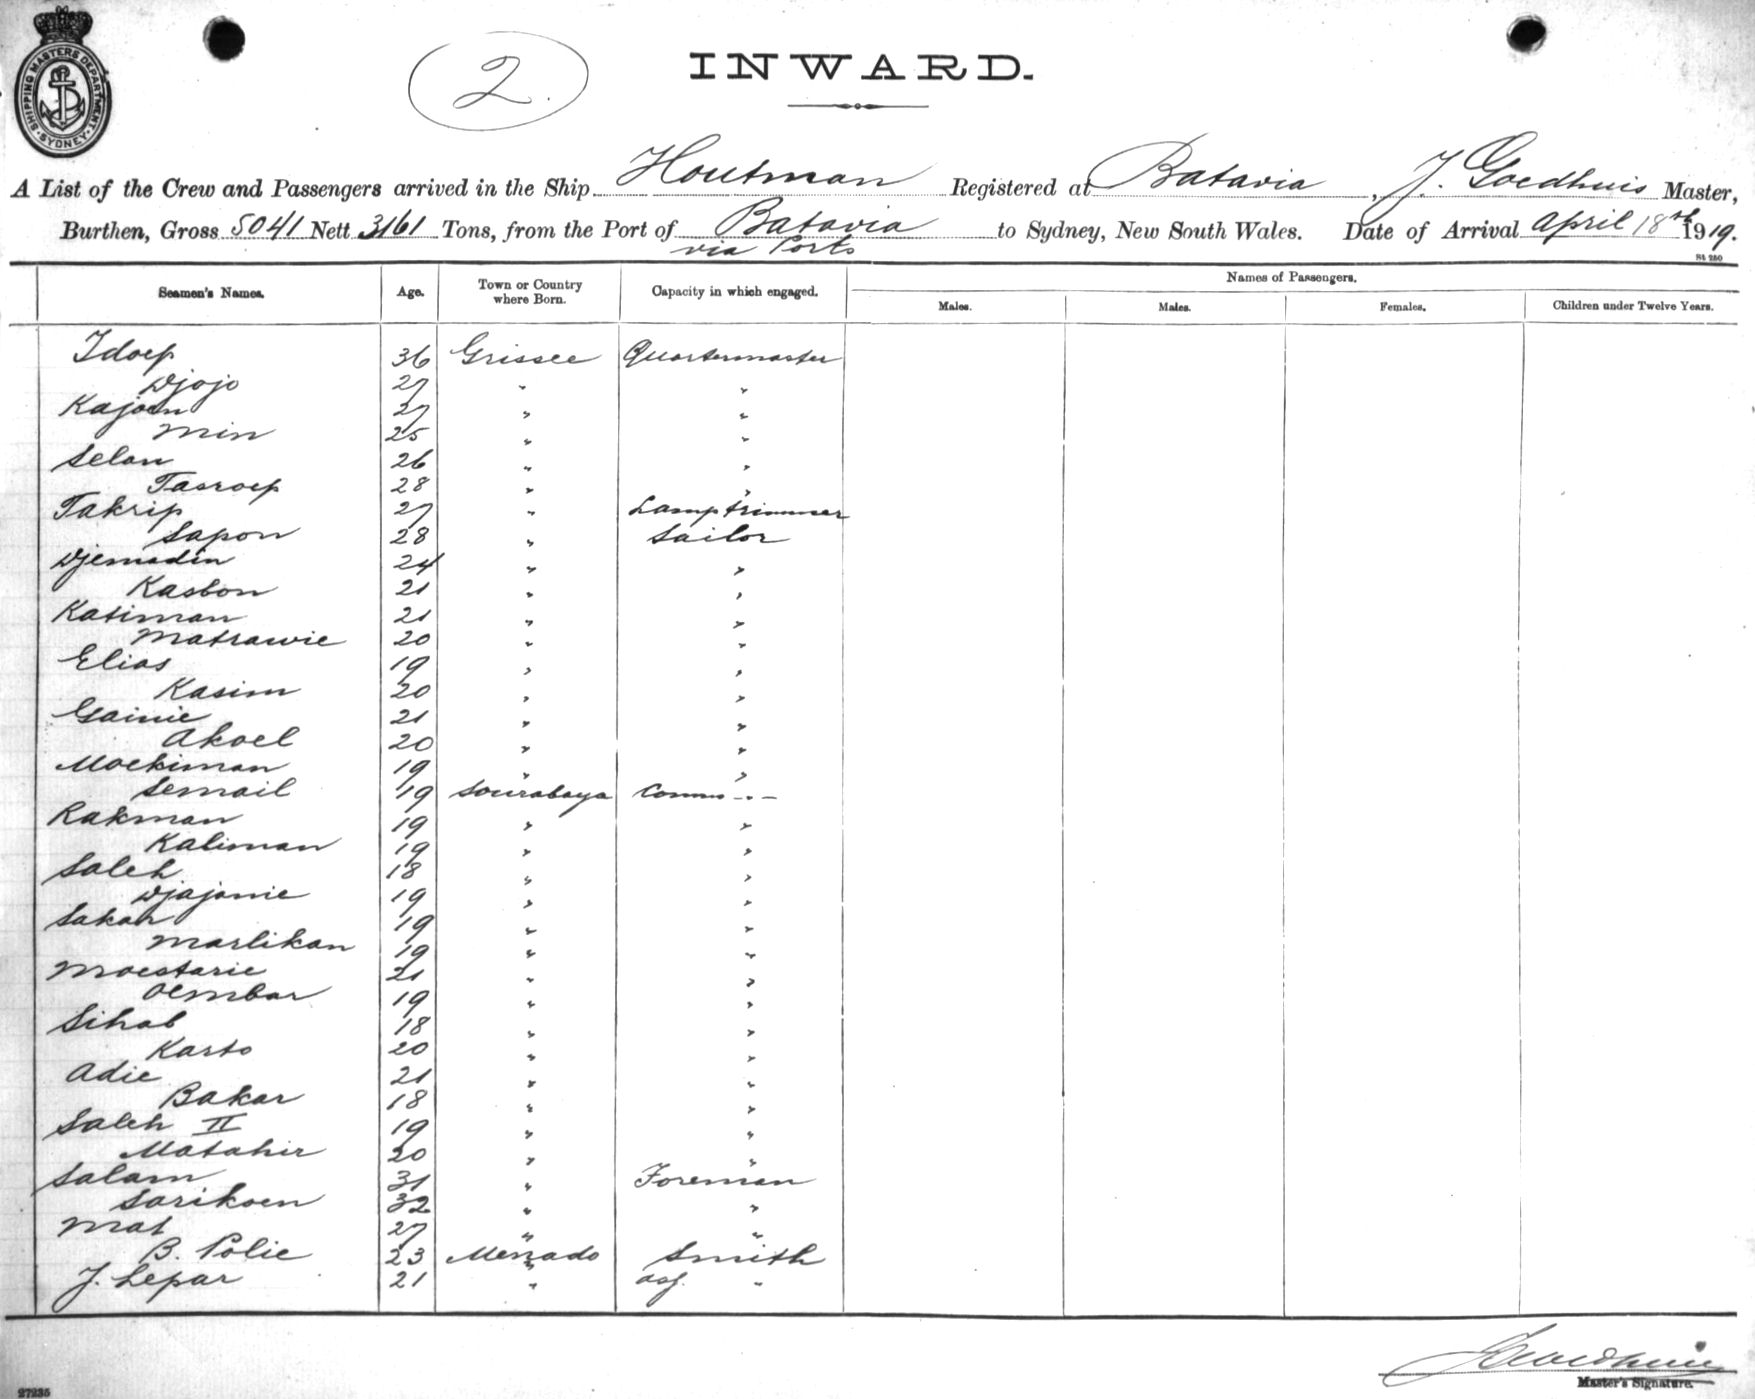 SHIPPING MASTERS DEPARTMENT
SYDNEY
2.
INWARD.
A List of the Crew and Passengers arrived in the Ship Houtman Registered at Batavia, J. Goedhuis Master,
Burthen, Gross 5041 Nett 3161 Tons, from the Port of Batavia to Sydney, New South Wales. Date of Arrival April 18th 1919.
via Ports
St 280
Seamen's Names. Age. Town or Country where Born. Capacity in which engaged. Names of Passengers.
Males. Males. Females. Children under Twelve Years.
Idoep 36 Grissee Quartermaster
Djojo 27 " "
Kajoen 27 " "
Min 25 " "
Selan 26 " "
Tasroep 28 " "
Takrip 27 " Lamptrimmer
Sapon 28 " Sailor
Djemadin 24 " "
Kasbon 21 " "
Katiman 21 " "
Matrawie 20 " "
Elias 19 " "
Kasim 20 " "
Gainie 21 " "
Akoel 20 " "
Moekiman 19 " "
Semail 19 Sourabaya Comm - " -
Rakman 19 " "
Kaliman 19 " "
Saleh 18 " "
Djajanie 19 " "
Sakar 19 " "
Marlikan 19 " "
Moestarie 21 " "
Oembar 19 " "
Sihab 18 " "
Karto 20 " "
Adie 21 " "
Bakar 18 " "
Saleh II 19 " "
Matahir 20 " "
Salam 31 " Foreman
Sarikoen 32 " "
Mat 27 " "
B. Polie 23 Menado Smith
J. Lepar 21 " "
Master's Signature.
27235